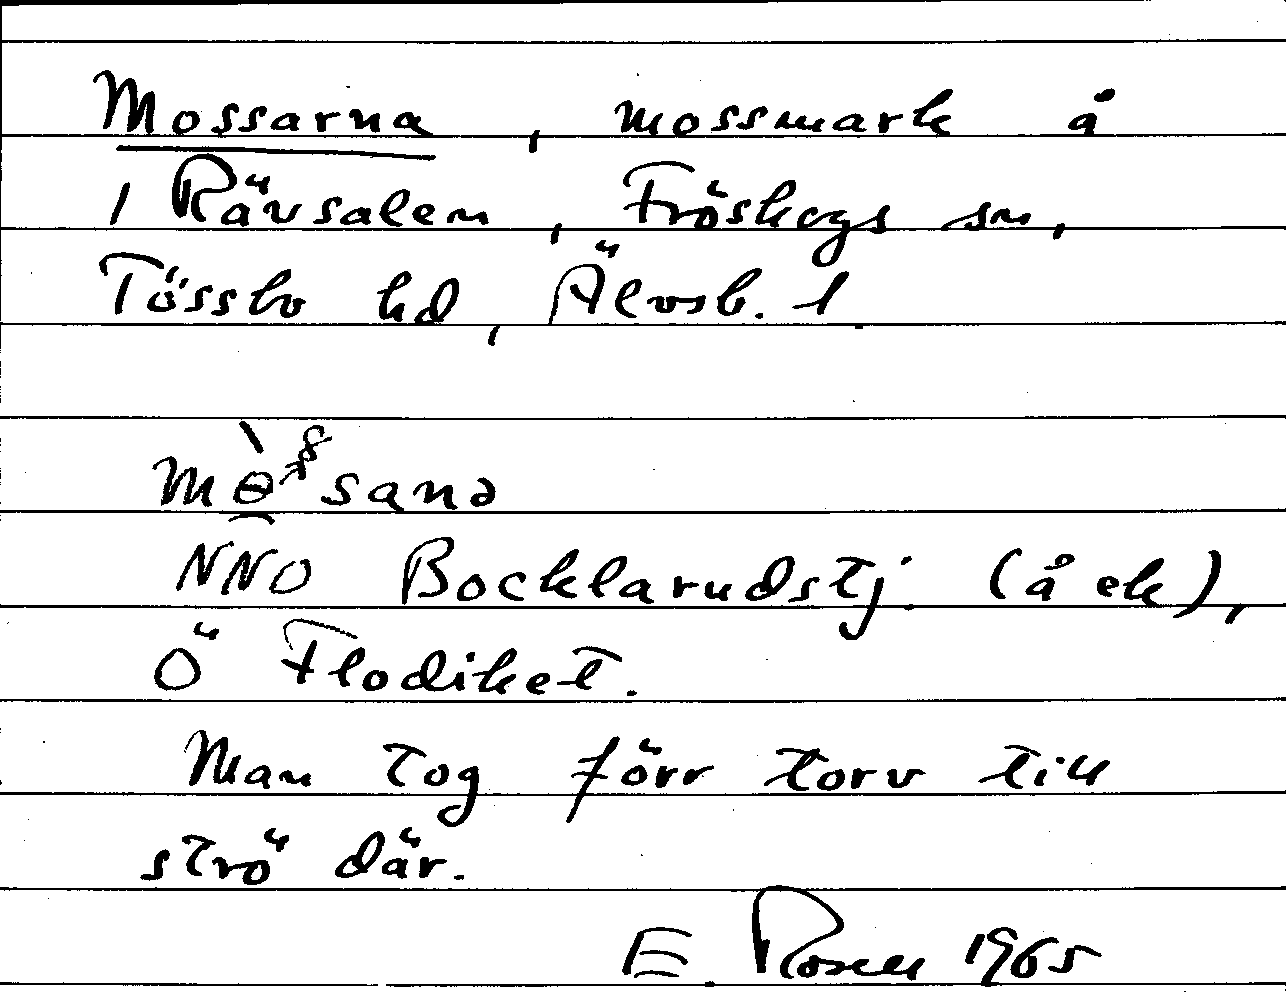 Mossarna, mossmark å
1 Rävsalen, Fröskogs sn,
Tössbo hd, Älvsb. l.
NNO Bocklarudstj. (å ek),
Ö Flodiket.
Man tog förr torv till
strö där.
E. Rosell 1965